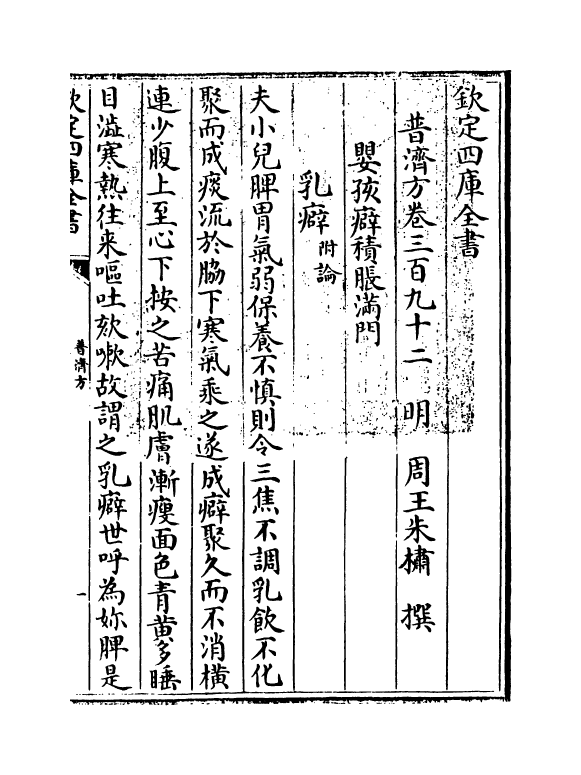 欽定四庫全書
普濟方卷三百九十二 明 周王朱橚 撰
嬰孩癖積脹滿門
乳癖附論
夫小兒脾胃氣弱保養不慎則令三焦不調乳飲不化
聚而成痰流於脇下寒氣乘之遂成癖聚久而不消橫
連少腹上至心下按之苦痛肌膚漸瘦面色青黄多睡
目澁寒熱往来嘔吐欬嗽故謂之乳癖世呼為妳脾是
欽定四庫全書
普濟方
一